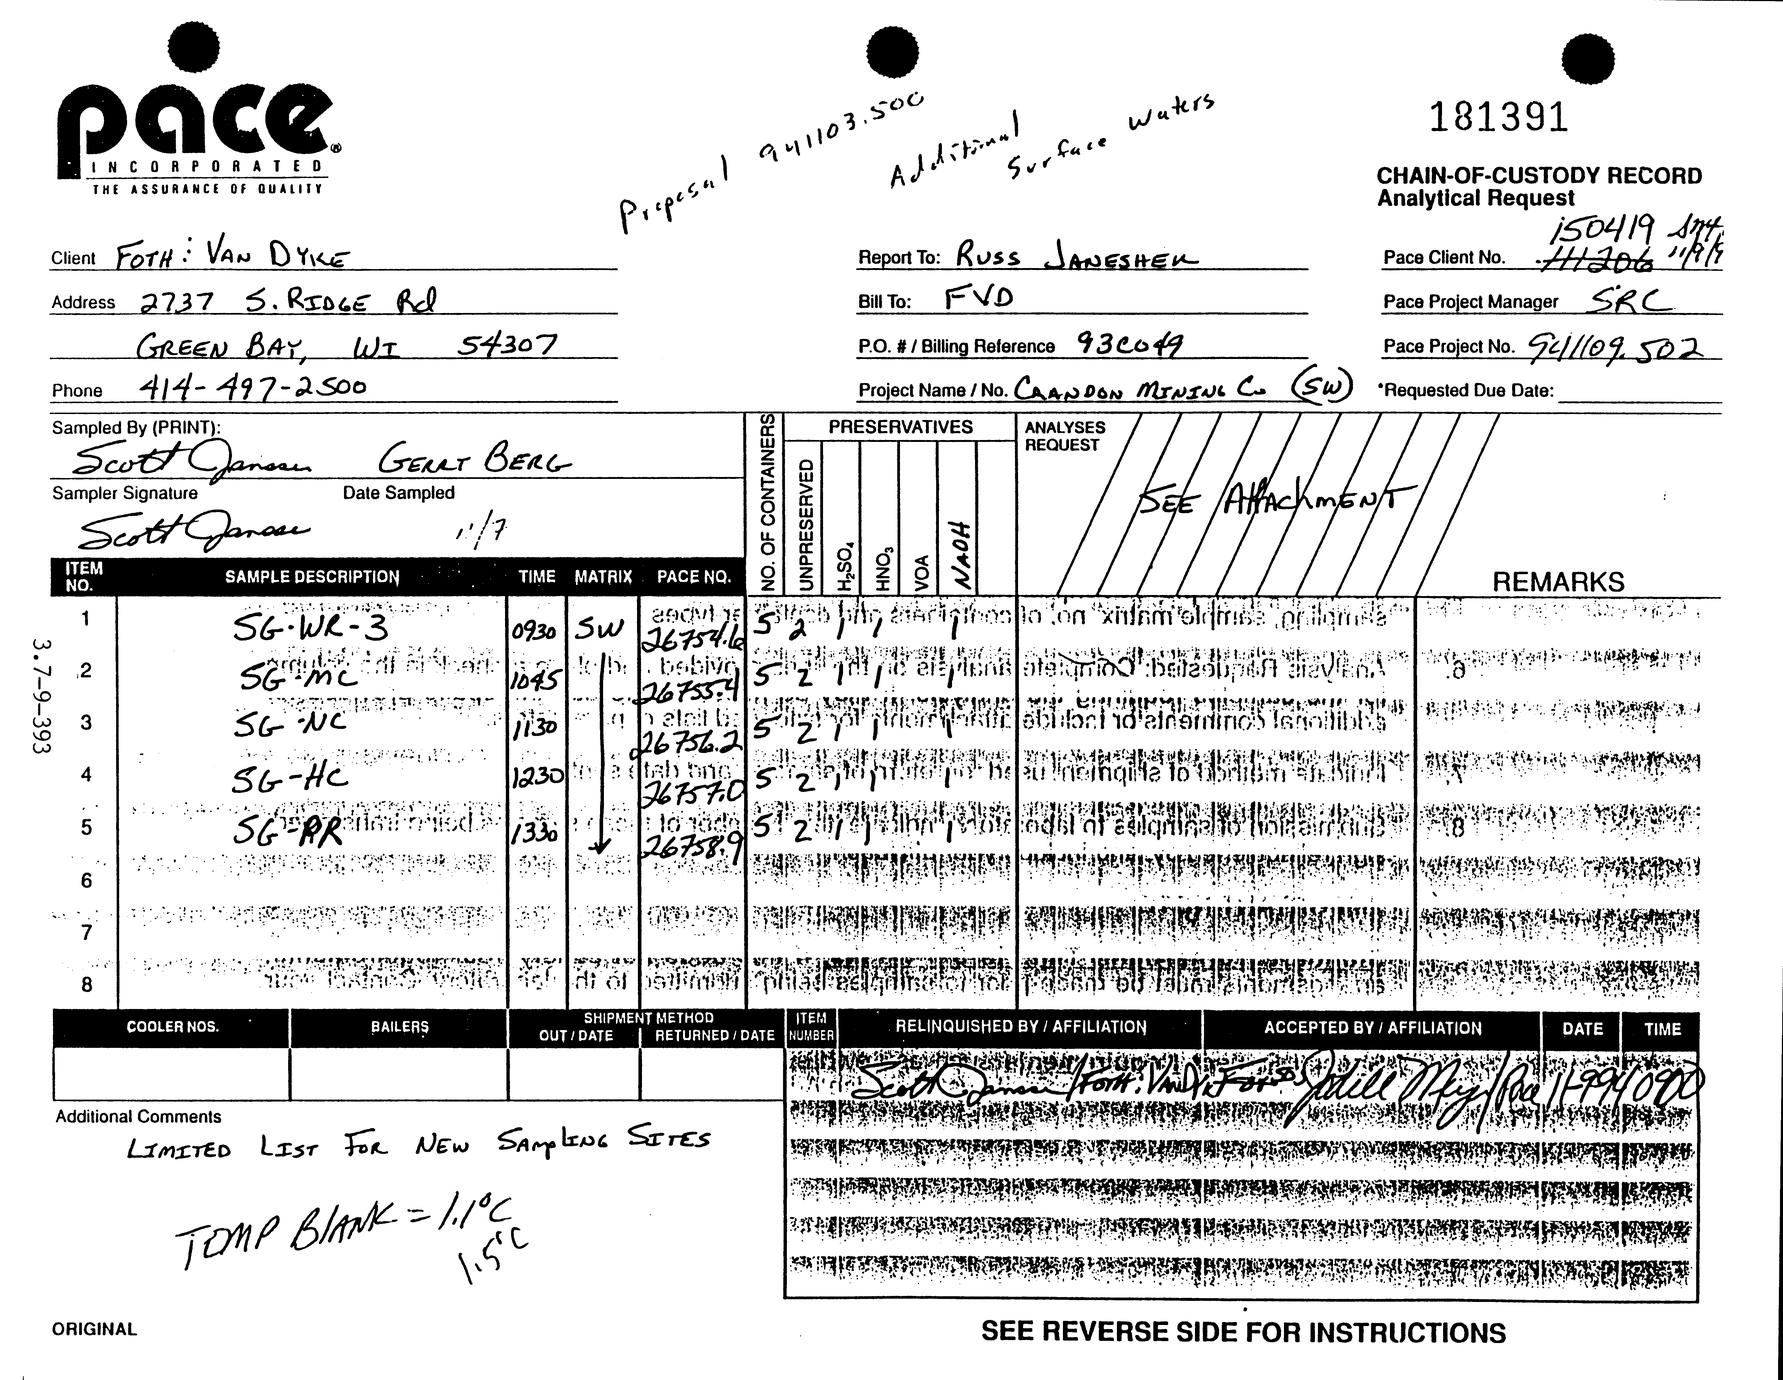 pace®
INCORPORATED
THE ASSURANCE OF QUALITY
Proposal 941103.500
Additional
Surface Waters
181391
CHAIN-OF-CUSTODY RECORD
Analytical Request
Client FOTH : VAN DYKE
Report To: RUSS JANESHEK
150419
Pace Client No. 111206 11/9/9
Address 2737 S. RIDGE Rd
Bill To: FVD
Pace Project Manager SRC
GREEN BAY, WI 54307
P.O. # / Billing Reference 93C049
Pace Project No. 941109.502
Phone 414-497-2500
Project Name / No. CRANDON MINING CO (SW)
*Requested Due Date:
Sampled By (PRINT):
Scott Janssen GERRT BERG
Sampler Signature Date Sampled
Scott Janssen 11/7
NO. OF CONTAINERS
PRESERVATIVES
UNPRESERVED
H2SO4
HNO3
VOA
NAOH
ANALYSES
REQUEST
SEE Attachment
REMARKS
ITEM NO. SAMPLE DESCRIPTION TIME MATRIX PACE NO.
1 SG-WR-3 0930 SW 26754.6 5 2 1 1 1
2 SG-MC 1045 26755.4 5 2 1 1 1
3 SG-NC 1130 26756.2 5 2 1 1 1
4 SG-HC 1230 26757.0 5 2 1 1 1
5 SG-RR 1330 26758.9 5 2 1 1 1
6
7
8
3.7-9-393
COOLER NOS. BAILERS SHIPMENT METHOD
OUT / DATE RETURNED / DATE
ITEM NUMBER RELINQUISHED BY / AFFILIATION ACCEPTED BY / AFFILIATION DATE TIME
Scott Janssen / FOTH : VANDYKE / Pace 11-9-94 0900
Additional Comments
LIMITED LIST FOR NEW SAMPLING SITES
TEMP BLANK = 1.1°C
1.5°C
ORIGINAL
SEE REVERSE SIDE FOR INSTRUCTIONS